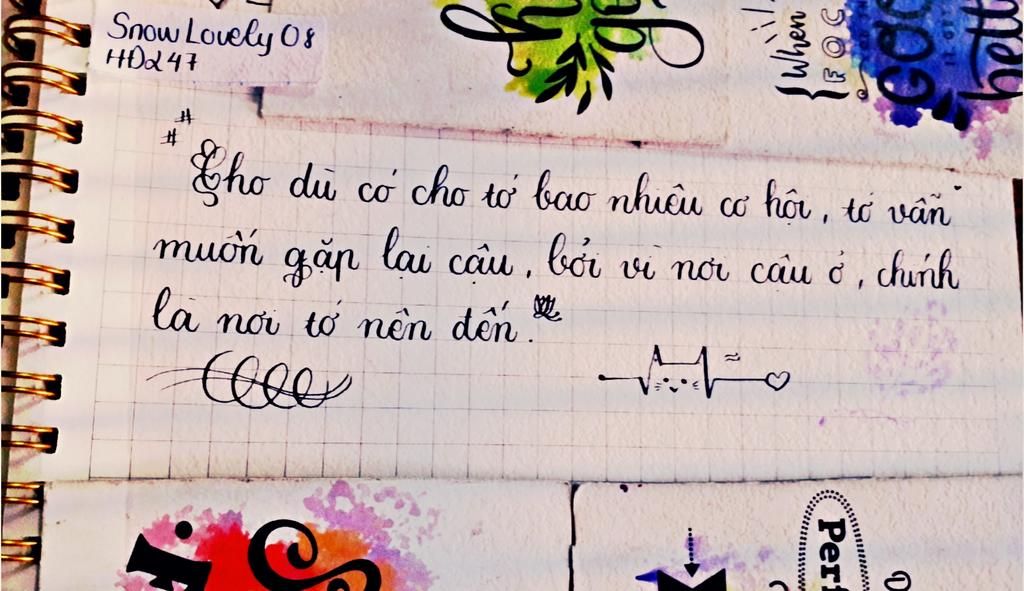 Snow Lovely 08
HD247
When
FOC
GOO
bett
##
Cho dù có cho tớ bao nhiêu cơ hội, tớ vẫn
muốn gặp lại cậu, bởi vì nơi câu ở, chính
là nơi tớ nên đến.
Perf